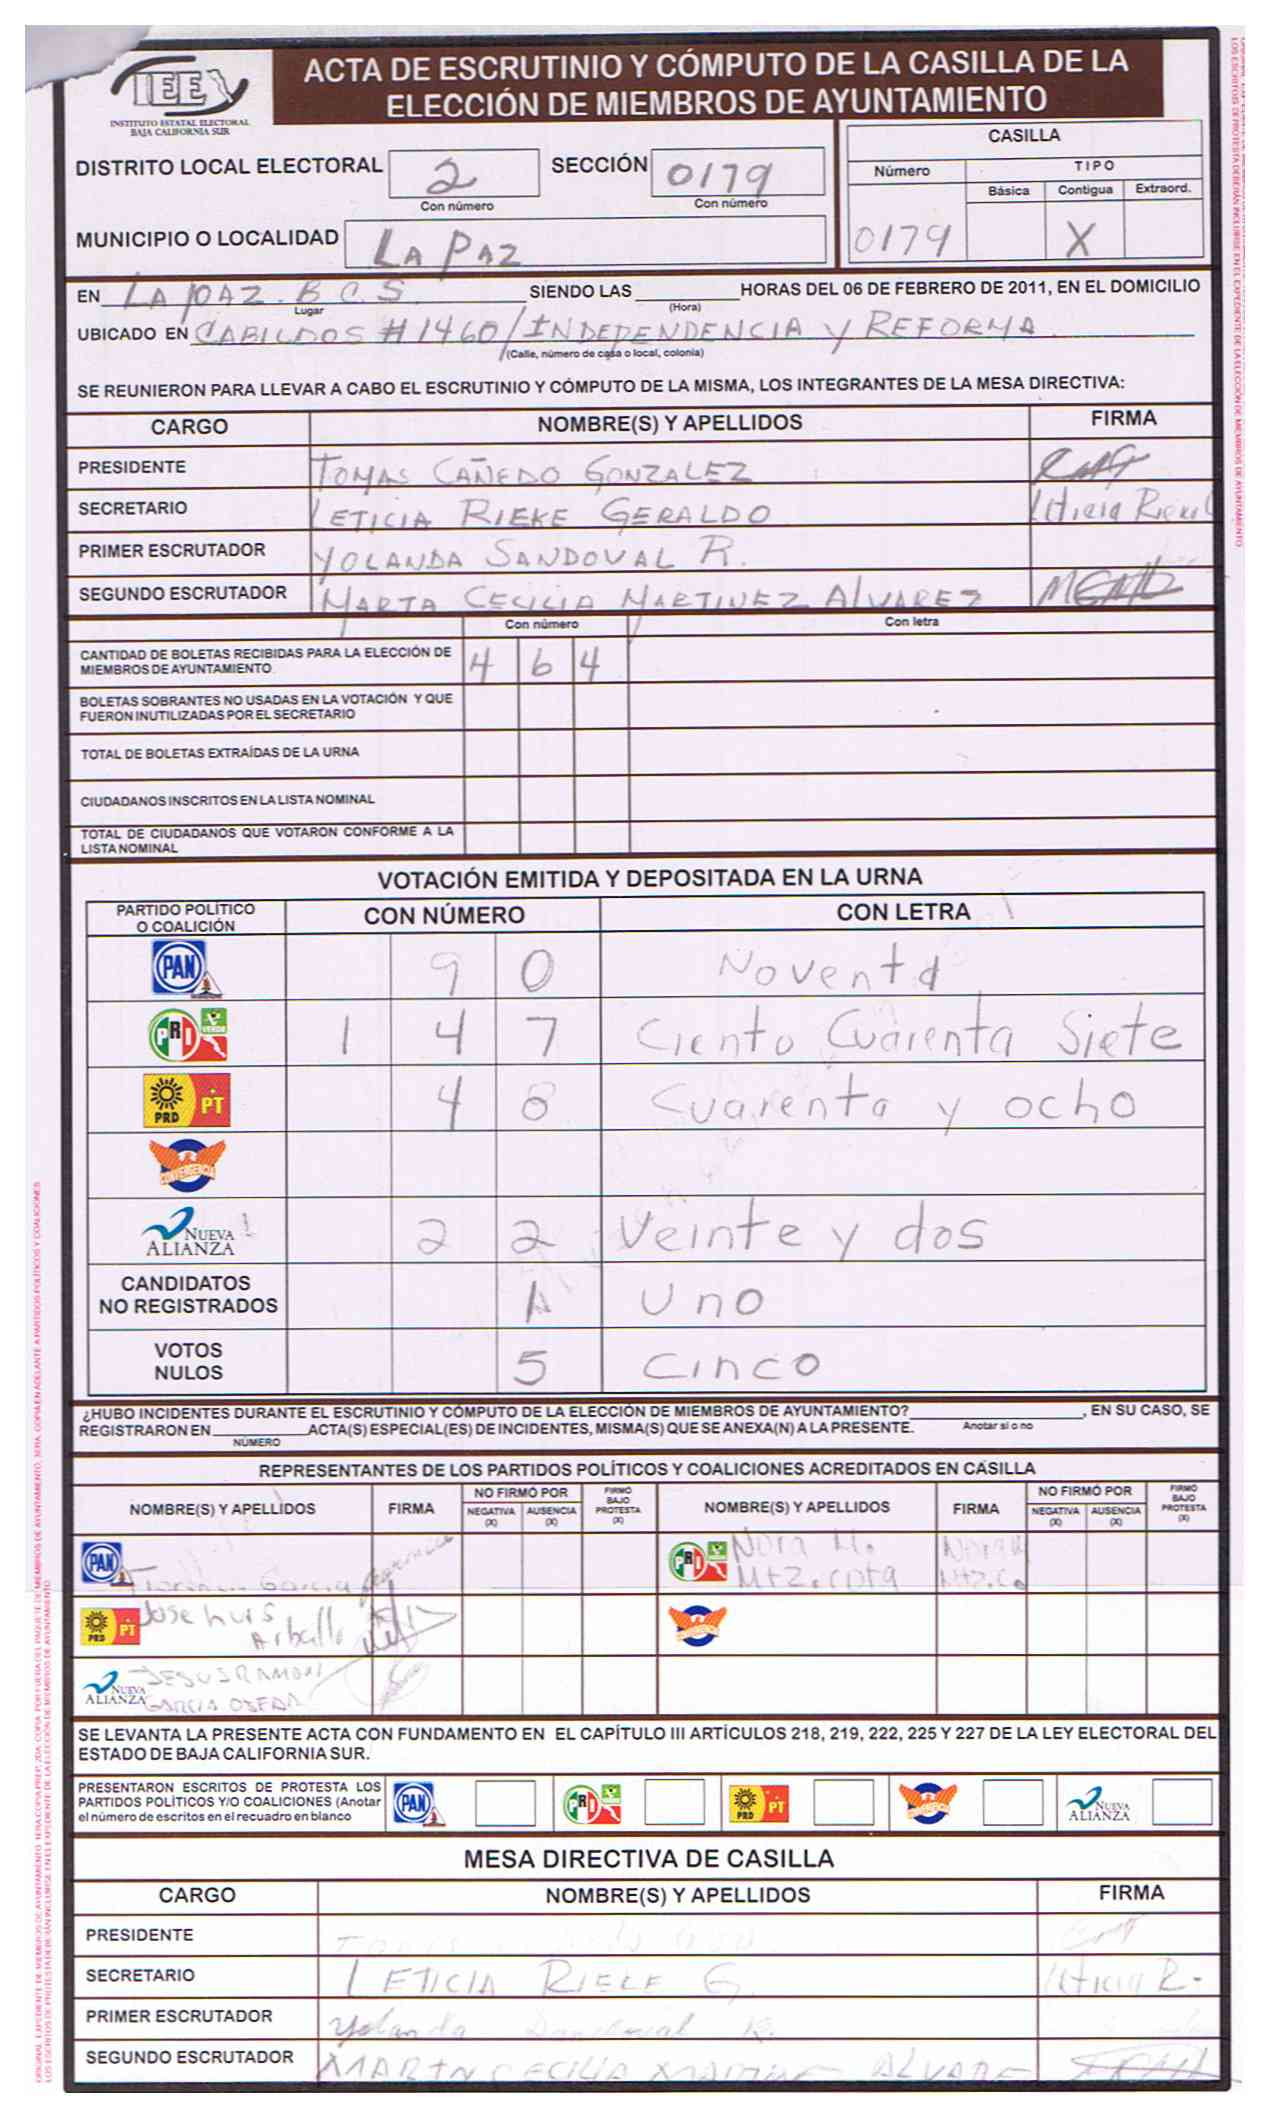 IEE
INSTITUTO ESTATAL ELECTORAL
BAJA CALIFORNIA SUR
ACTA DE ESCRUTINIO Y CÓMPUTO DE LA CASILLA DE LA
ELECCIÓN DE MIEMBROS DE AYUNTAMIENTO
DISTRITO LOCAL ELECTORAL 2 SECCIÓN 0179
Con número Con número
MUNICIPIO O LOCALIDAD LA PAZ
CASILLA
Número TIPO
Básica Contigua Extraord.
0179 X
EN LA PAZ. B.C.S. SIENDO LAS HORAS DEL 06 DE FEBRERO DE 2011, EN EL DOMICILIO
Lugar (Hora)
UBICADO EN CABILDOS #1460/INDEPENDENCIA y REFORMA
(Calle, número de casa o local, colonia)
SE REUNIERON PARA LLEVAR A CABO EL ESCRUTINIO Y CÓMPUTO DE LA MISMA, LOS INTEGRANTES DE LA MESA DIRECTIVA:
CARGO NOMBRE(S) Y APELLIDOS FIRMA
PRESIDENTE TOMAS CAÑEDO GONZALEZ
SECRETARIO LETICIA RIEKE GERALDO Leticia
PRIMER ESCRUTADOR YOLANDA SANDOVAL R.
SEGUNDO ESCRUTADOR MARTA CECILIA MARTINEZ ALVAREZ
Con número Con letra
CANTIDAD DE BOLETAS RECIBIDAS PARA LA ELECCIÓN DE
MIEMBROS DE AYUNTAMIENTO 4 6 4
BOLETAS SOBRANTES NO USADAS EN LA VOTACIÓN Y QUE
FUERON INUTILIZADAS POR EL SECRETARIO
TOTAL DE BOLETAS EXTRAÍDAS DE LA URNA
CIUDADANOS INSCRITOS EN LA LISTA NOMINAL
TOTAL DE CIUDADANOS QUE VOTARON CONFORME A LA
LISTA NOMINAL
VOTACIÓN EMITIDA Y DEPOSITADA EN LA URNA
PARTIDO POLÍTICO
O COALICIÓN CON NÚMERO CON LETRA
PAN 9 0 Noventa
PRI VERDE 1 4 7 Ciento Cuarenta Siete
PRD PT 4 8 Cuarenta y ocho
CONVERGENCIA
NUEVA ALIANZA 2 2 Veinte y dos
CANDIDATOS
NO REGISTRADOS 1 uno
VOTOS
NULOS 5 cinco
¿HUBO INCIDENTES DURANTE EL ESCRUTINIO Y CÓMPUTO DE LA ELECCIÓN DE MIEMBROS DE AYUNTAMIENTO? , EN SU CASO, SE
Anotar si o no
REGISTRARON EN ACTA(S) ESPECIAL(ES) DE INCIDENTES, MISMA(S) QUE SE ANEXA(N) A LA PRESENTE.
NÚMERO
REPRESENTANTES DE LOS PARTIDOS POLÍTICOS Y COALICIONES ACREDITADOS EN CASILLA
NOMBRE(S) Y APELLIDOS FIRMA NO FIRMÓ POR NEGATIVA (X) AUSENCIA (X) FIRMÓ BAJO PROTESTA (X) NOMBRE(S) Y APELLIDOS FIRMA NO FIRMÓ POR NEGATIVA (X) AUSENCIA (X) FIRMÓ BAJO PROTESTA (X)
PAN Garcia PRI VERDE Nora M. Nora M
Mtz. Cota Mtz. Co
PRD PT Jose Luis
Arballo
NUEVA ALIANZA JESUS RAMON
GARCIA OJEDA
SE LEVANTA LA PRESENTE ACTA CON FUNDAMENTO EN EL CAPÍTULO III ARTÍCULOS 218, 219, 222, 225 Y 227 DE LA LEY ELECTORAL DEL
ESTADO DE BAJA CALIFORNIA SUR.
PRESENTARON ESCRITOS DE PROTESTA LOS
PARTIDOS POLÍTICOS Y/O COALICIONES (Anotar
el número de escritos en el recuadro en blanco
PAN PRI PRD PT NUEVA ALIANZA
MESA DIRECTIVA DE CASILLA
CARGO NOMBRE(S) Y APELLIDOS FIRMA
PRESIDENTE
SECRETARIO LETICIA RIEKE G. Leticia R.
PRIMER ESCRUTADOR Yolanda Sandoval R.
SEGUNDO ESCRUTADOR CECILIA ALVARE
LOS ESCRITOS DE PROTESTA DEBERÁN INCLUIRSE EN EL EXPEDIENTE DE LA ELECCIÓN DE MIEMBROS DE AYUNTAMIENTO